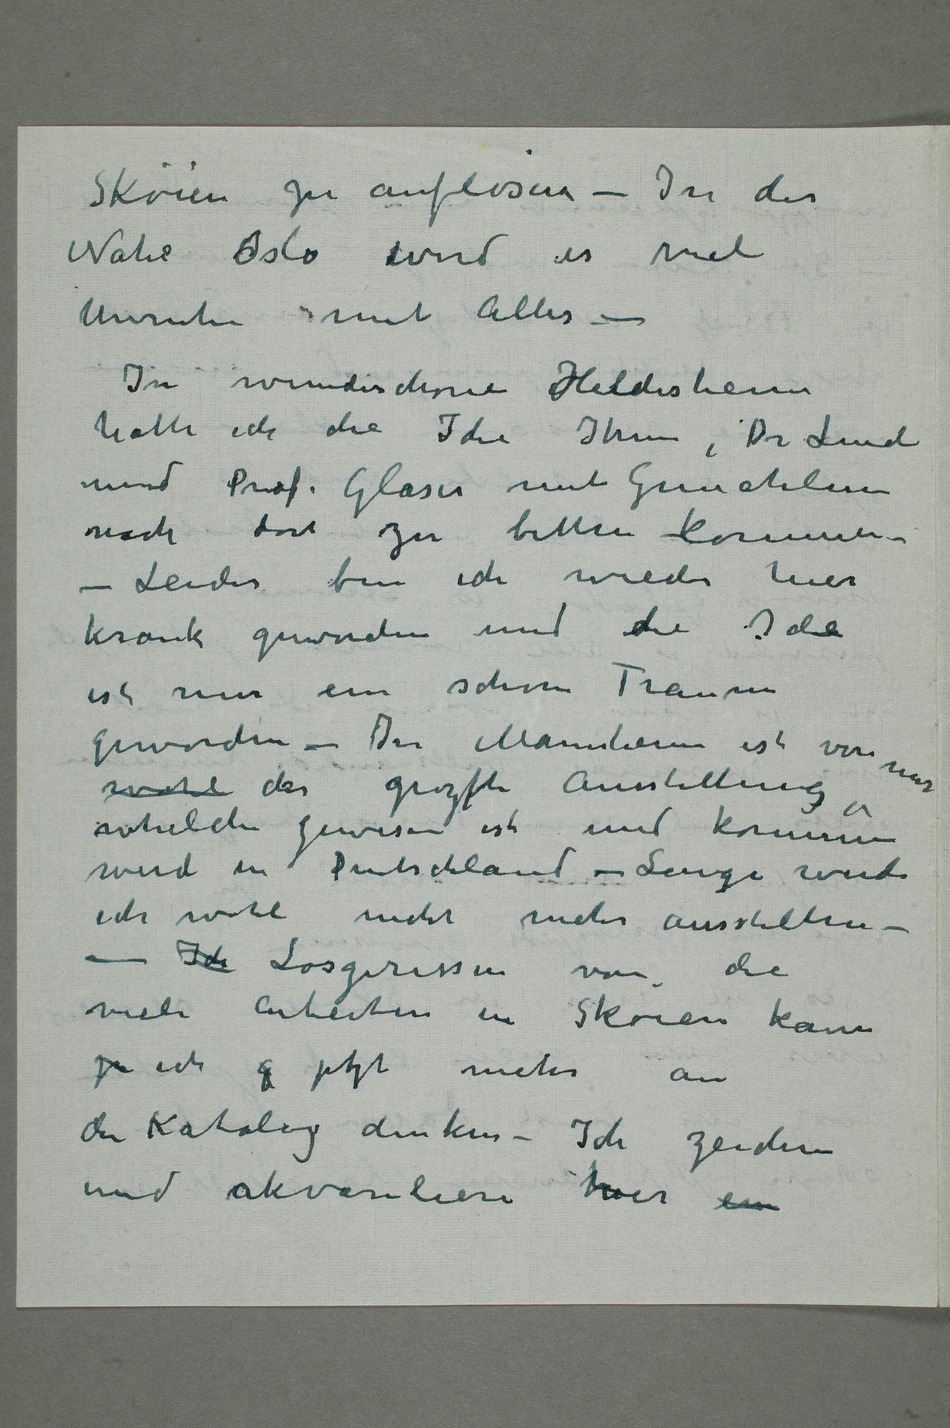 Skøien zu auflösen – In der
Nähe Oslo wird es viel
Unruhe mit Alles –
In wunderschöne Hildesheim
hatte ich die Idee Ihnen, Dr Lund
und Prof. Glaser mit Gemahlin
nach dort zu bitten kommen –
– Leider bin ich wieder hier
krank geworden und die Idee
ist nur ein schöne Traum
geworden – In Mannheim ist von mir
wohl der grozste Ausstellung
whelche gewesen ist und kommen
wird in Deutschland – Lange werde
ich wohl nicht mehr ausstellen –
– Ich Losgerissen von die
viele Arbeiten in Skøien kann
ich jetzt mehr an
die Katalog denken – Ich zeichne
und akvareliere hier